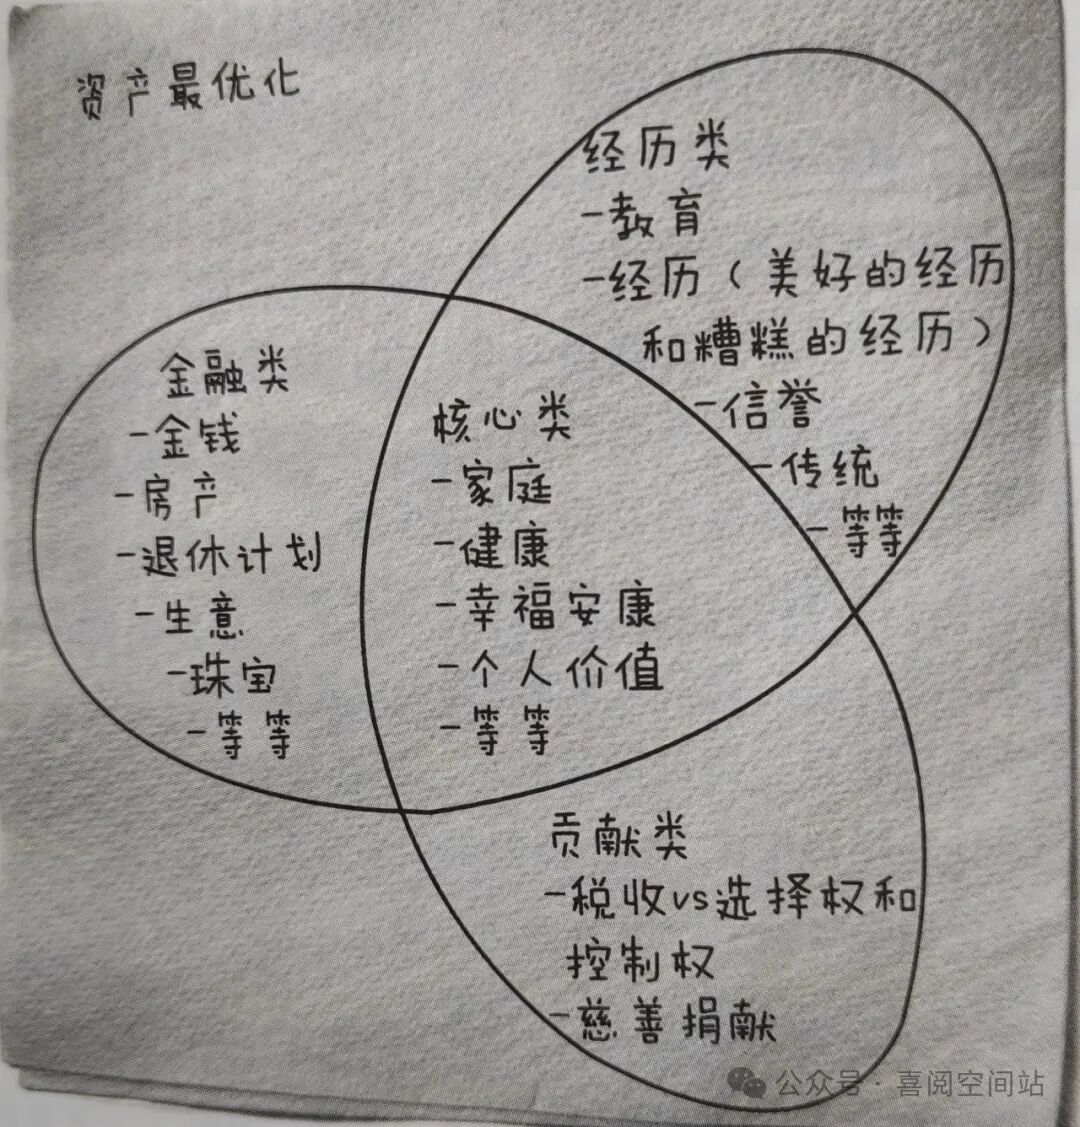 资产最优化
经历类
-教育
-经历（美好的经历
和糟糕的经历）
-信誉
-传统
-等等
金融类
-金钱
-房产
-退休计划
-生意
-珠宝
-等等
核心类
-家庭
-健康
-幸福安康
-个人价值
-等等
贡献类
-税收vs选择权和
控制权
-慈善捐献
公众号·喜阅空间站